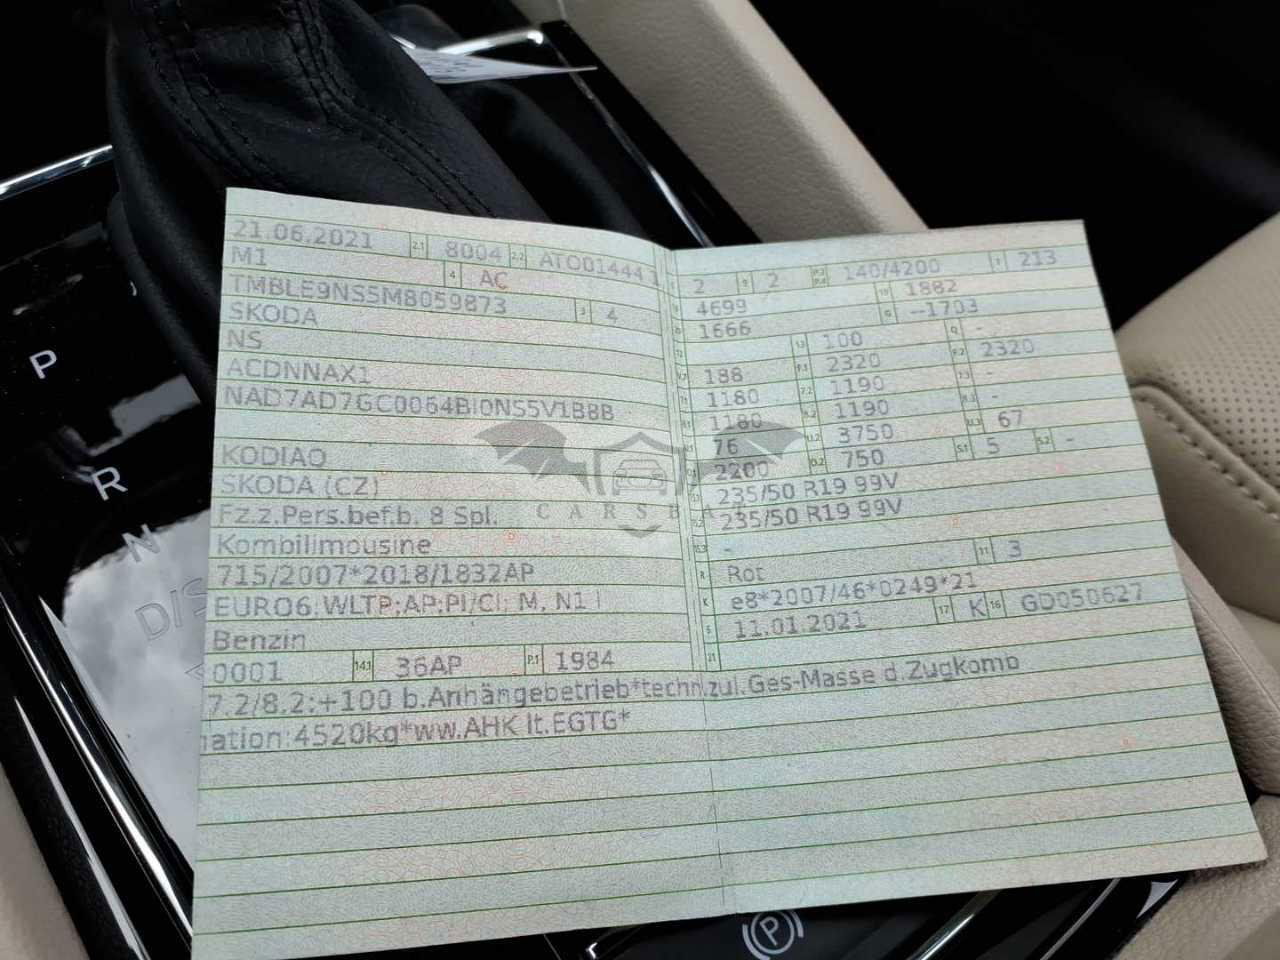 21.06.2021 2.1 8004 2.2 ATO01444 1
M1 4 AC
TMBLE9NS5M8059873 3 4
SKODA
NS
ACDNNAX1
NAD7AD7GC0064BI0NS5V1B8B
KODIAQ
SKODA (CZ)
Fz.z.Pers.bef.b. 8 Spl.
Kombilimousine
715/2007*2018/1832AP
EURO6;WLTP;AP;PI/CI; M, N1 I
Benzin
0001 14.1 36AP P.1 1984
7.2/8.2:+100 b.Anhängebetrieb*techn.zul.Ges-Masse d.Zugkomb
ination:4520kg*ww.AHK lt.EGTG*
2 9 2 P.2 P.4 140/4200 T 213
4699 18 1882
1666 G --1703
13 100 Q -
188 F.1 2320 F.2 2320
1180 7.2 1190 7.3 -
1180 8.2 1190 8.3 -
76 U.2 3750 U.3 67
2200 O.2 750 S.1 5 S.2 -
235/50 R19 99V
235/50 R19 99V
-
R Rot 11 3
K e8*2007/46*0249*21
11.01.2021 17 K 16 GD050627
21
CARSBAT
P
R
N
P